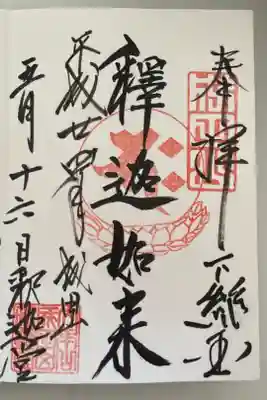 奉拝 下総国
釋迦如来
平成廿四年 成田山
五月十六日 釈迦堂